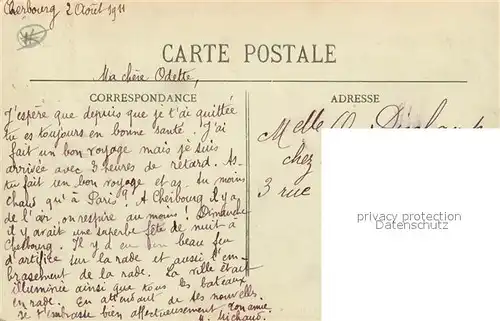 Cherbourg 2 Août 1911
CARTE POSTALE
Ma chère Odette,
CORRESPONDANCE
ADRESSE
J'espère que depuis que je t'ai quittée
tu es toujours en bonne santé. J'ai
fait un bon voyage mais je suis
arrivée avec 3 heures de retard. As-
tu fait un bon voyage et as tu moins
chaud qu'à Paris? A Cherbourg il y a
de l'air, on respire au moins! Dimanche
il y avait une superbe fête de nuit à
Cherbourg. Il y a eu un beau feu
d'artifice sur la rade et aussi l'em-
brasement de la rade. La ville était
illuminée ainsi que tous les bateaux
en rade. En attendant de tes nouvelles
je t'embrasse bien affectueusement Ton amie
Michaud
Melle O.
chez
3 rue
privacy protection
Datenschutz